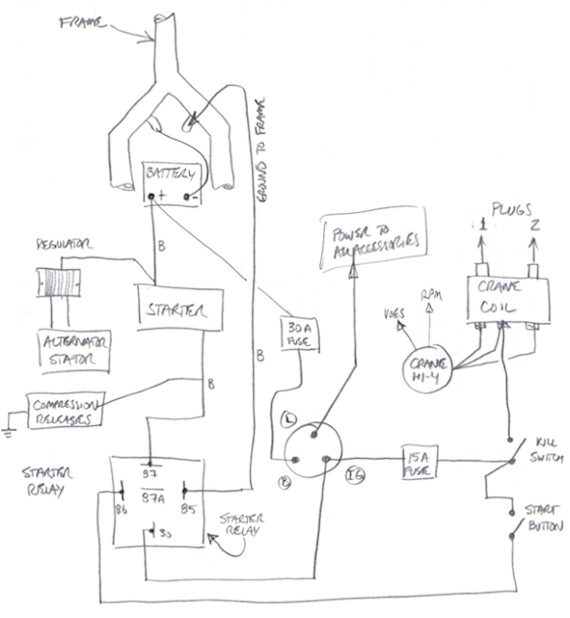 FRAME
GROUND TO FRAME
BATTERY
+ -
PLUGS
1 2
POWER TO
ALL ACCESSORIES
REGULATOR
B
RPM
VOES
CRANE
COIL
STARTER
30A
FUSE
ALTERNATOR
STATOR
CRANE
HI-4
B
B
COMPRESSION
RELEASES
L
KILL
SWITCH
15A
FUSE
B
IG
STARTER
RELAY
87
87A
86
85
30
STARTER
RELAY
START
BUTTON